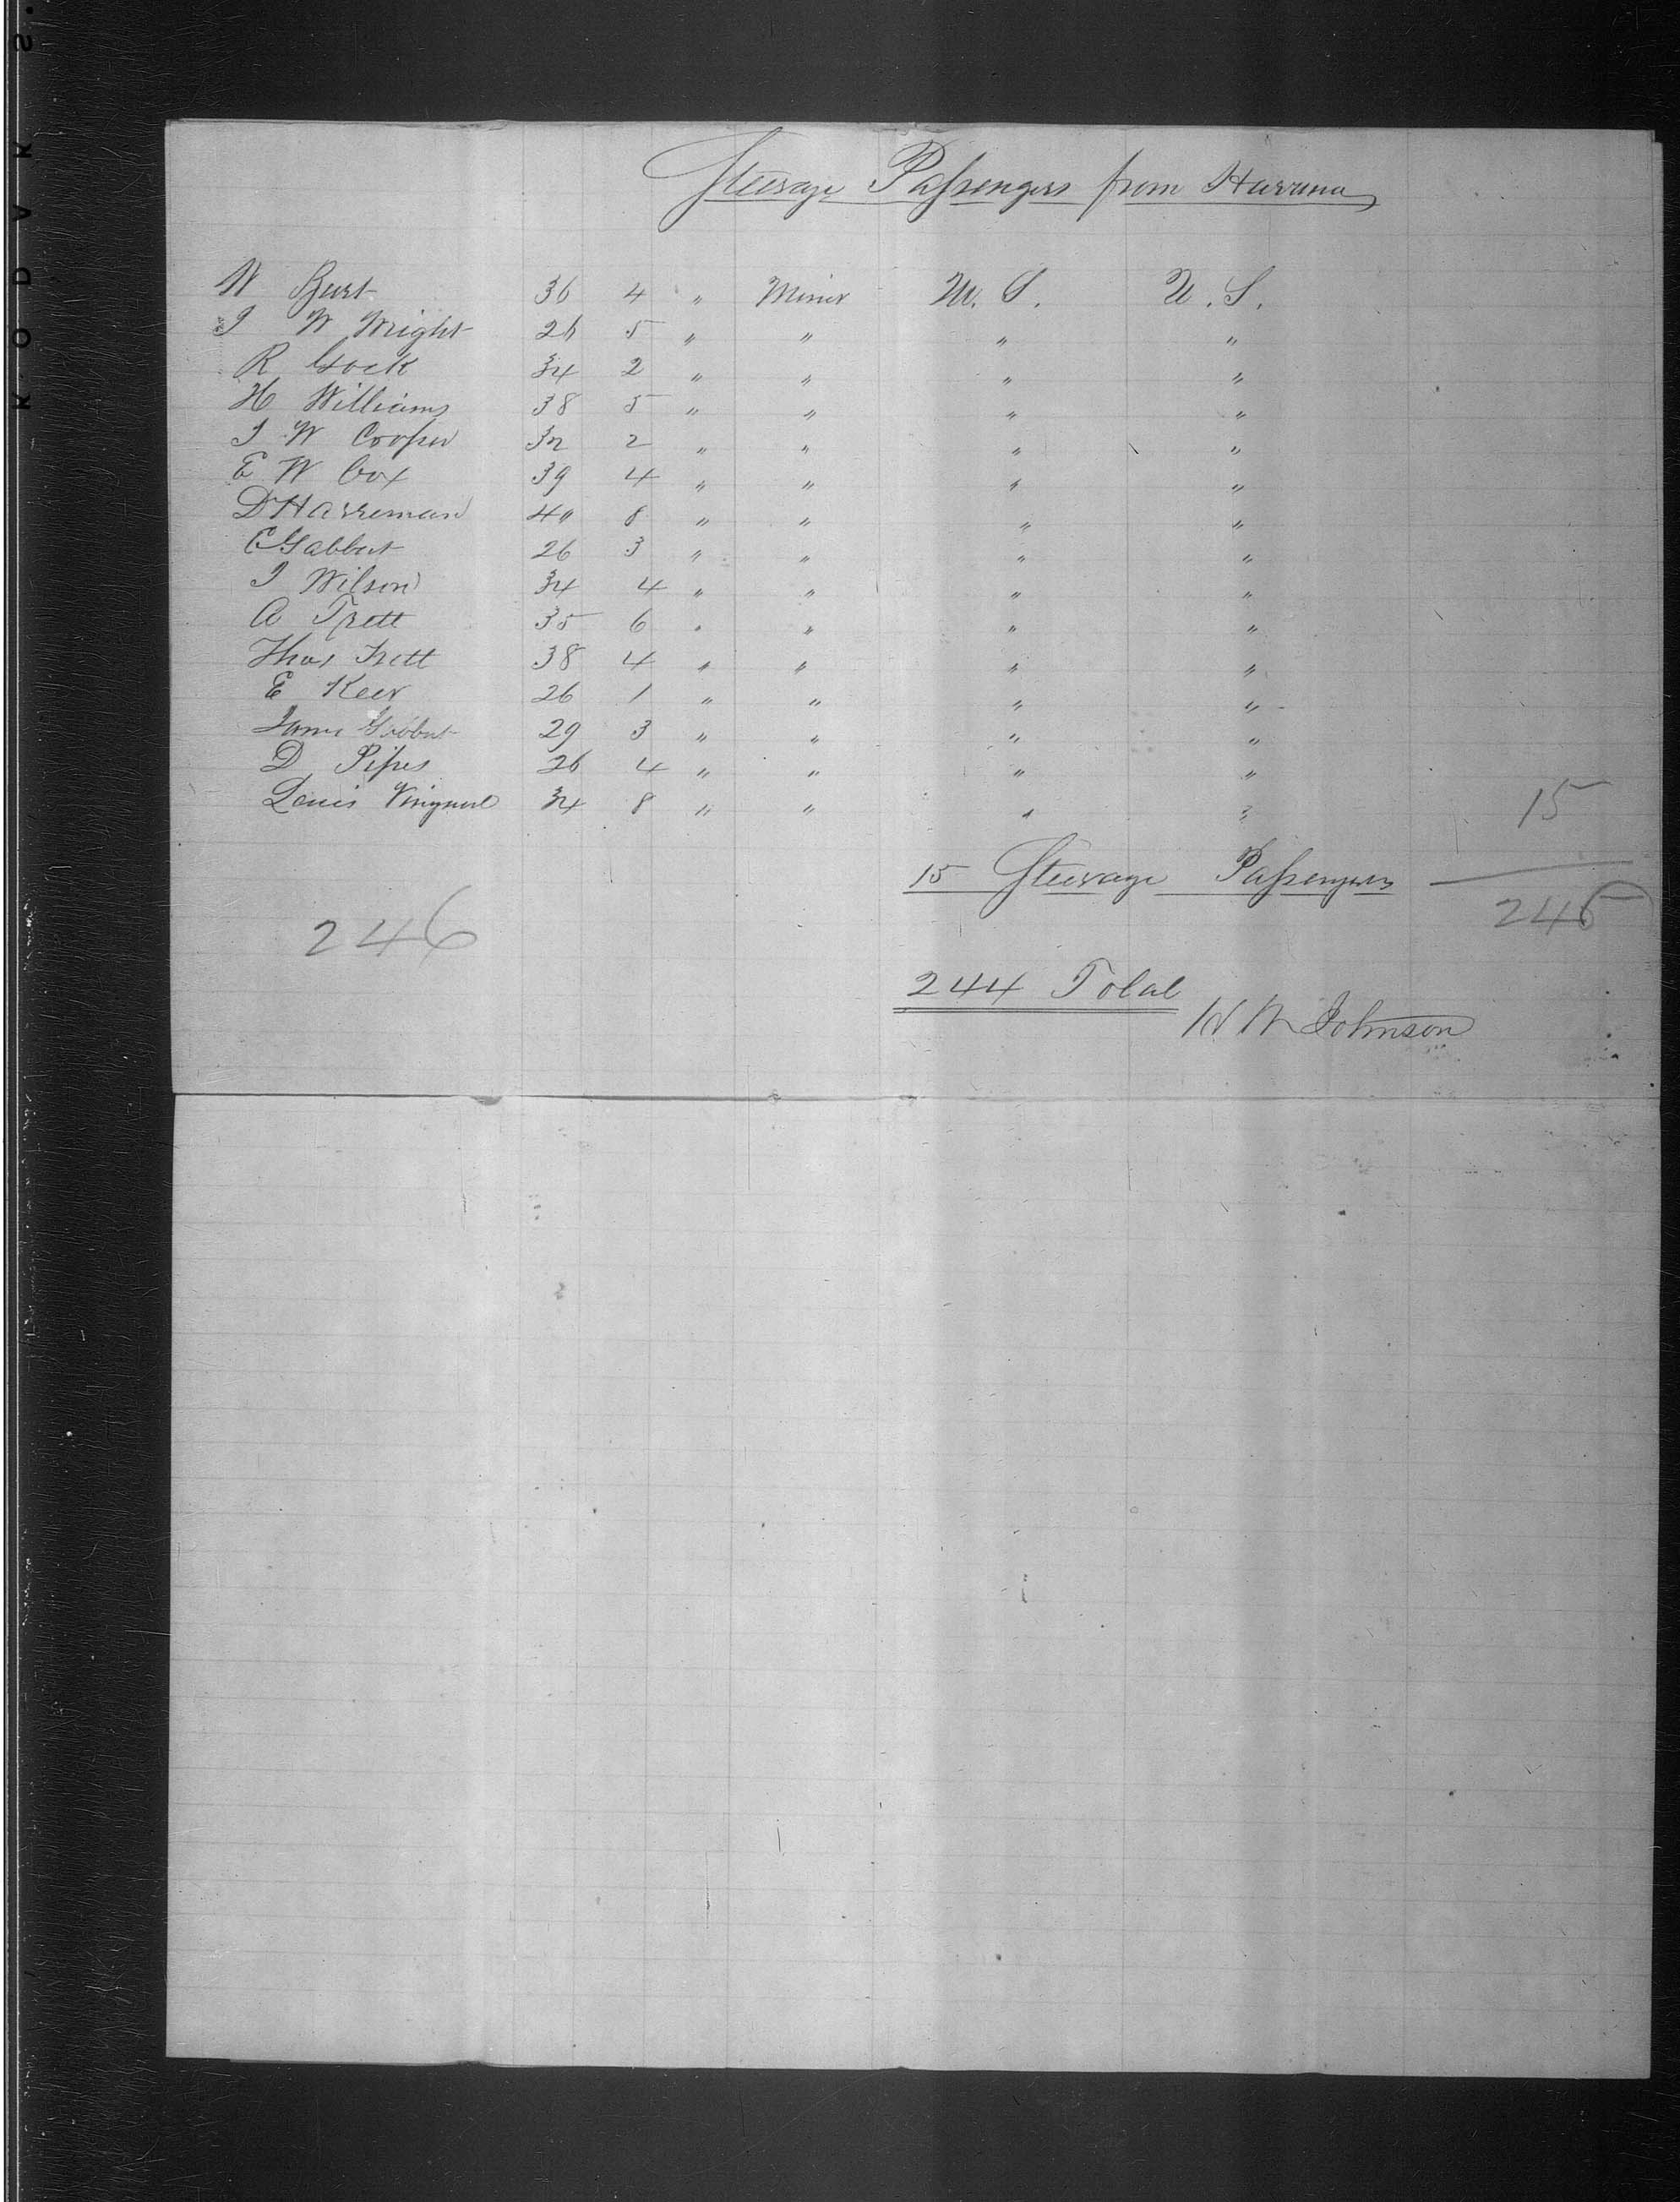 Steerage Passengers from Havana
W Burt 36 4 " Miner U. S. U. S.
J W Wright 26 5 " " " "
R Gock 34 2 " " " "
H Williams 38 5 " " " "
J W Cooper 32 2 " " " "
E W Cox 39 4 " " " "
D Harreman 40 8 " " " "
C Gabbert 26 3 " " " "
J Wilson 34 4 " " " "
A Trett 35 6 " " " "
Thos Trett 38 4 " " " "
E Keer 26 1 " " " "
James Gabbert 29 3 " " " "
D Pipes 26 4 " " " "
Louis 34 8 " " " "
15
15 Steerage Passengers
246
246
244 Total
Johnson
KODVK S.